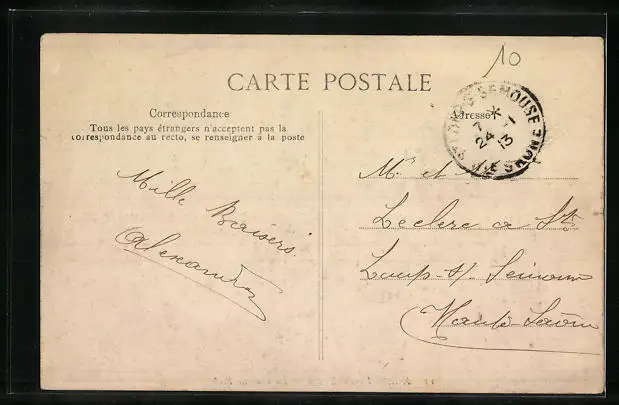 10
CARTE POSTALE
Correspondance
Tous les pays étrangers n'acceptent pas la
correspondance au recto, se renseigner à la poste
Adresse
7 *
24 - 1
13
Mille Baisers.
Alexandre
Mr et
Leclerc a St
Loup-s/ Semouse
Haute Saône